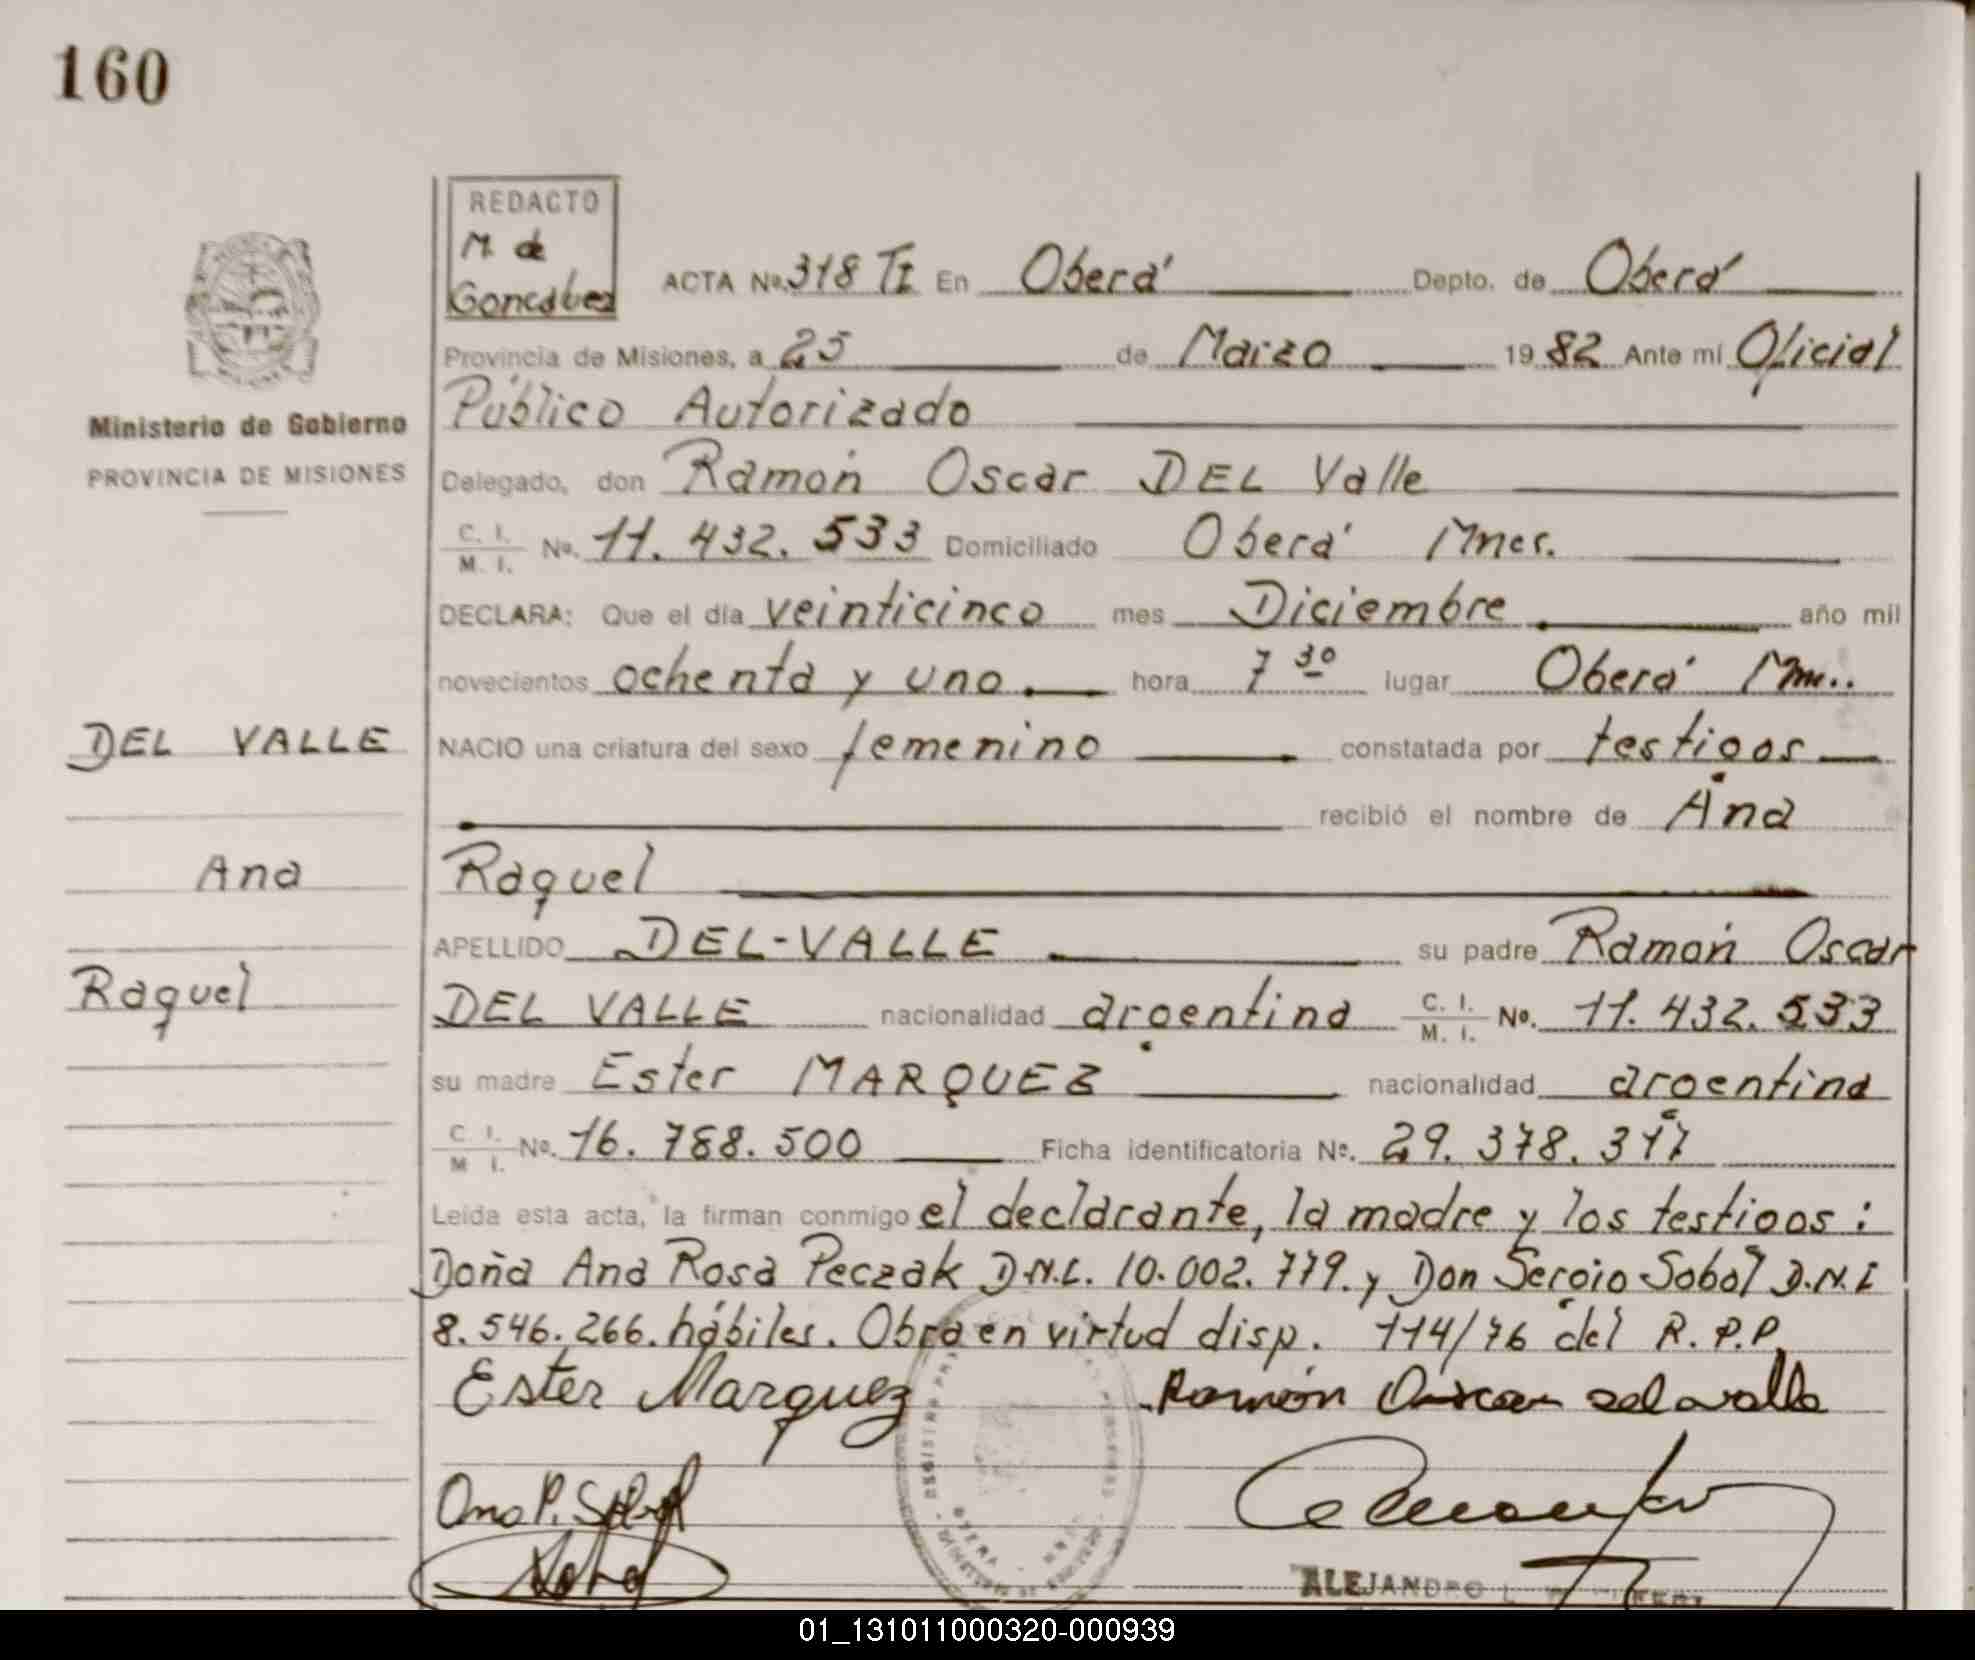 160
REDACTO
M. de
Goncalvez
ACTA No. 318 TI En Oberá Depto. de Oberá
Provincia de Misiones, a 25 de Marzo 1982 Ante mí Oficial
Público Autorizado
Ministerio de Gobierno
PROVINCIA DE MISIONES
Delegado, don Ramón Oscar DEL Valle
C. I. M. I. No. 11.432.533 Domiciliado Oberá Mnes.
DECLARA: Que el día veinticinco mes Diciembre año mil
novecientos ochenta y uno hora 7 30 lugar Oberá
DEL VALLE
NACIO una criatura del sexo femenino constatada por testigos
recibió el nombre de Ana
Ana
Raquel
APELLIDO DEL-VALLE su padre Ramón Oscar
Raquel
DEL VALLE nacionalidad argentina C. I. M. I. No. 11.432.533
su madre Ester MARQUEZ nacionalidad argentina
C. I. M I. No. 16.788.500 Ficha identificatoria No. 29.378.317
Leída esta acta, la firman conmigo el declarante, la madre y los testigos:
Doña Ana Rosa Peczak D.N.I. 10.002.779. y Don Sergio Sobol D.N.I
8.546.266. hábiles. Obra en virtud disp. 114/76 del R.P.P.
Ester Marquez
Ramón Oscar del valle
Ana P.
ALEJANDRO L
01_131011000320-000939